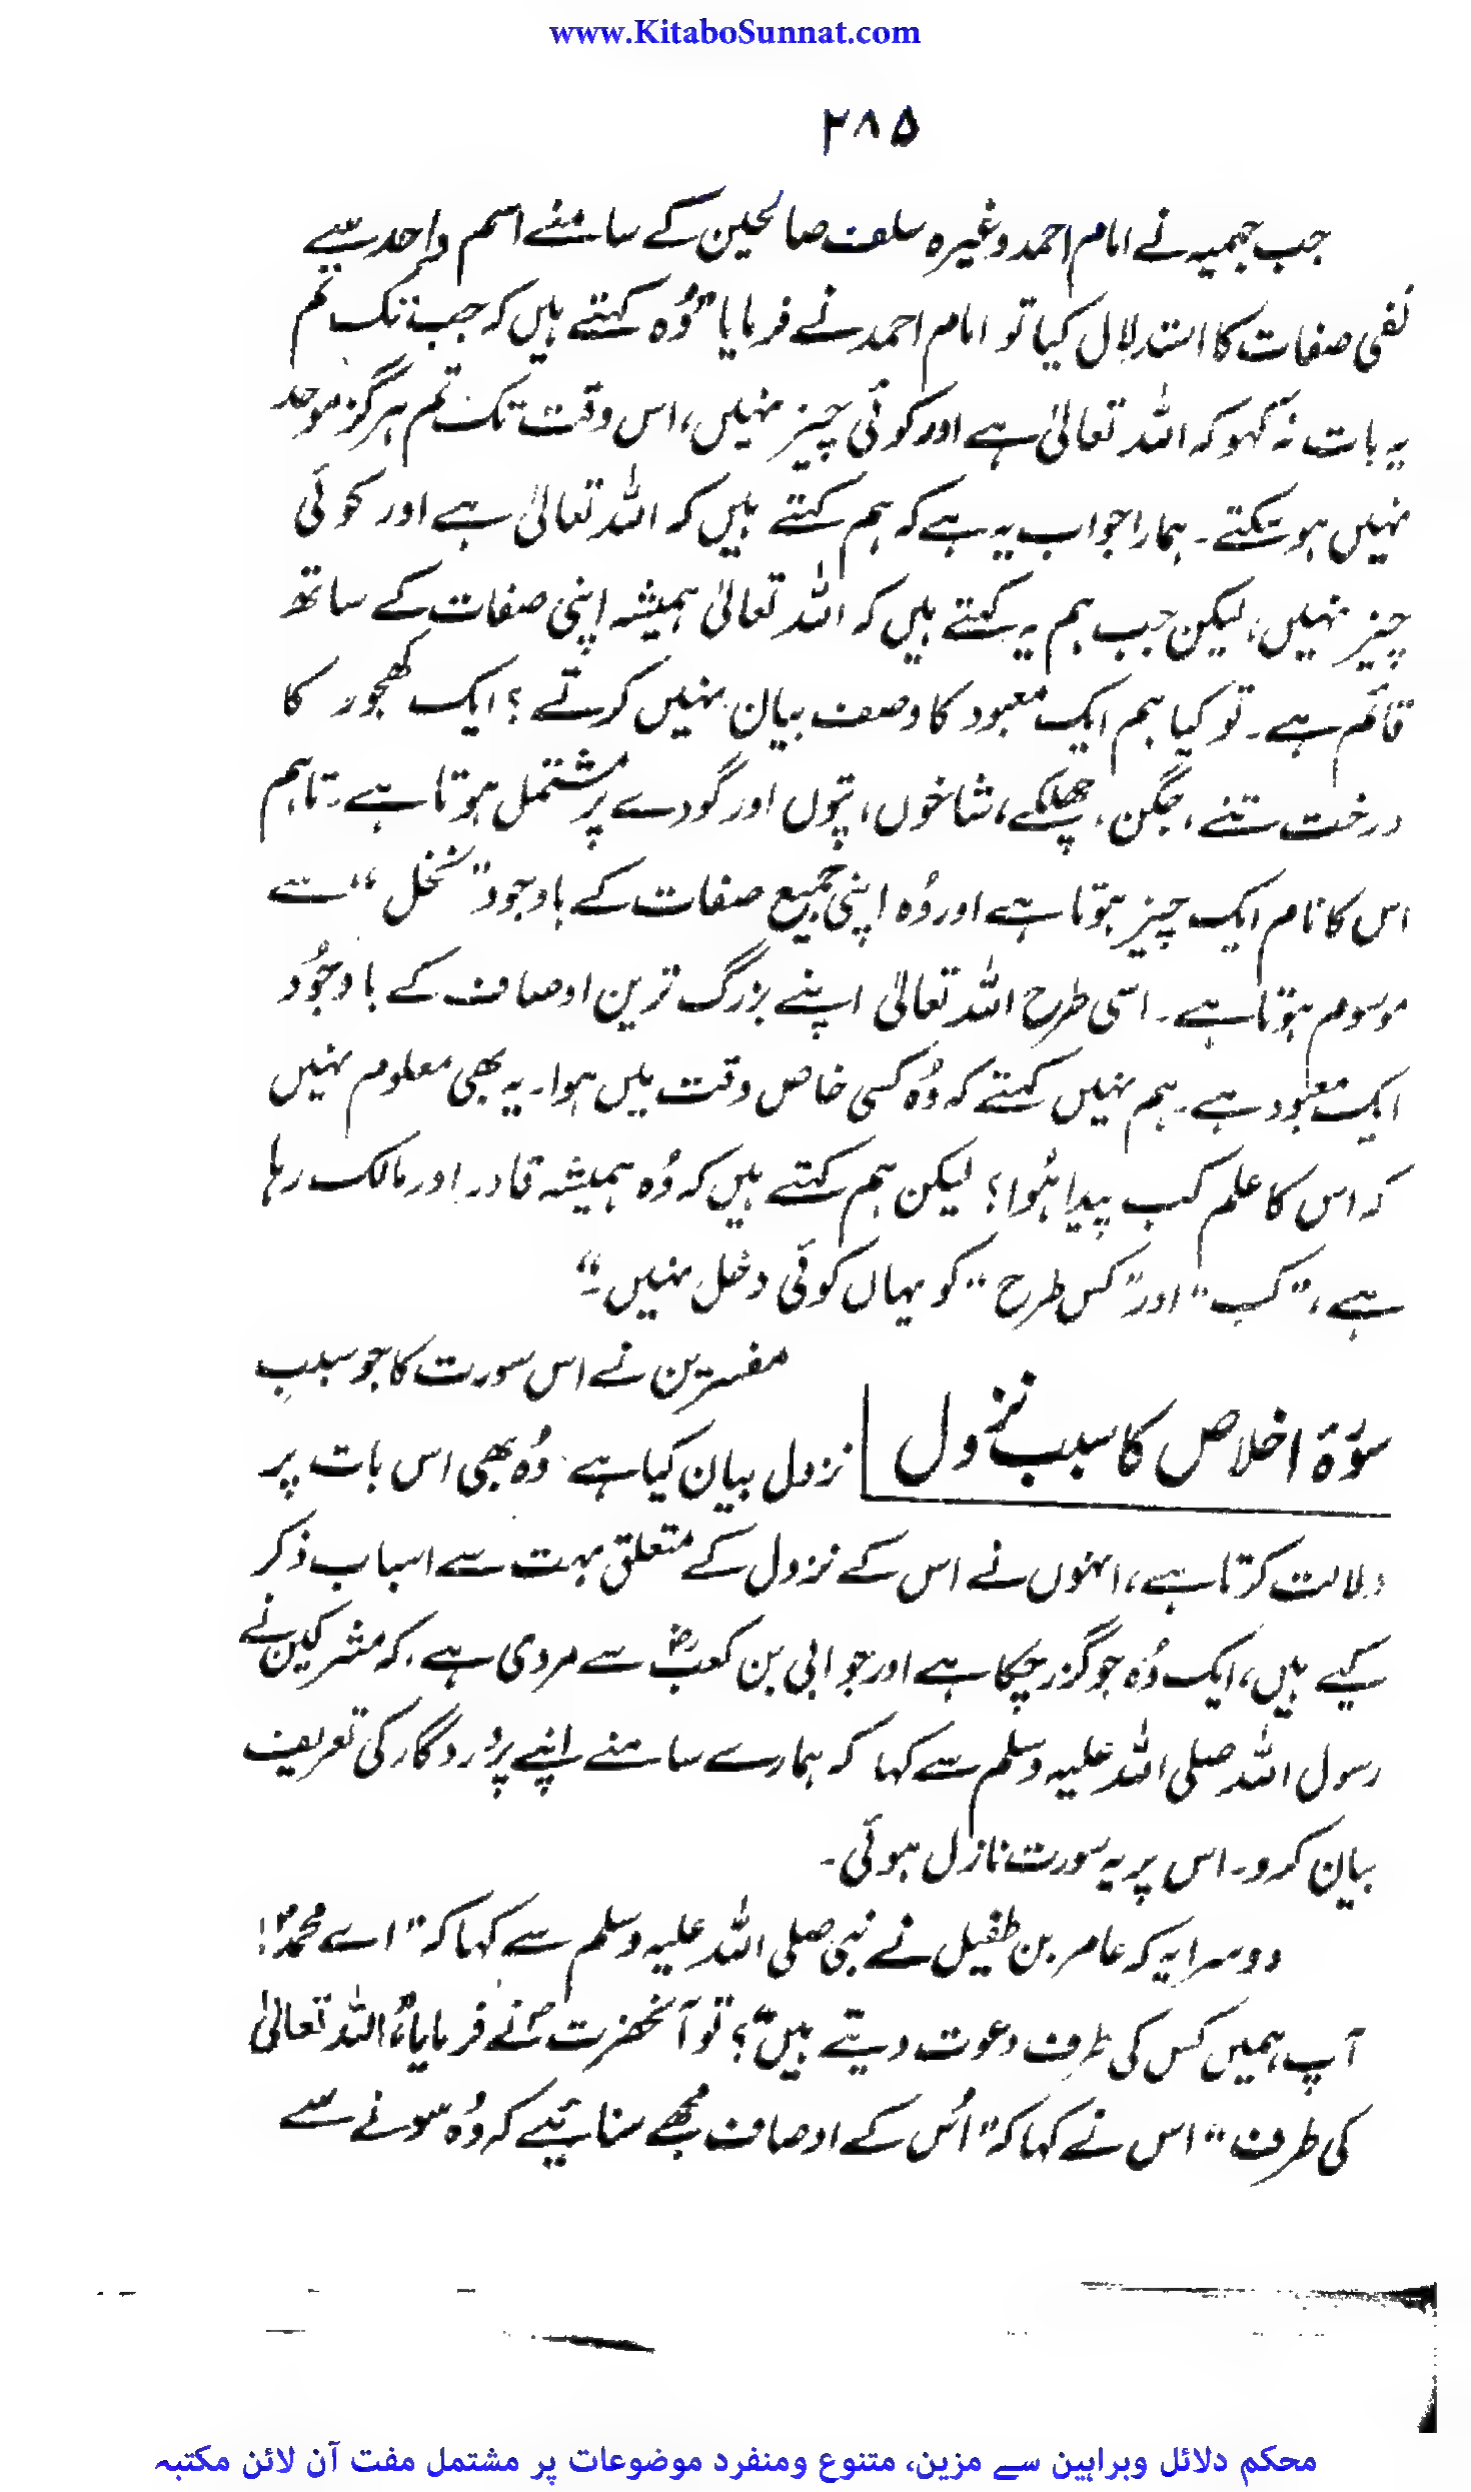 www.KitaboSunnat.com
۲۸۵
جب جہمیہ نے امام احمد وغیرہ سلف صالحین کے سامنے اسم واحد سے
نفی صفات کا استدلال کیا تو امام احمد نے فرمایا "وُہ کہتے ہیں کہ جب تک تم
یہ بات نہ کہو کہ اللہ تعالیٰ ہے اور کوئی چیز نہیں، اس وقت تک تم ہرگز موحد
نہیں ہو سکتے۔ ہمارا جواب یہ ہے کہ ہم کہتے ہیں کہ اللہ تعالیٰ ہے اور کوئی
چیز نہیں، لیکن جب ہم یہ کہتے ہیں کہ اللہ تعالیٰ ہمیشہ اپنی صفات کے ساتھ
قائم ہے۔ تو کیا ہم ایک معبود کا وصف بیان نہیں کرتے؟ ایک کھجور کا
درخت تنے، جگن، چھلکے، شاخوں، پتوں اور گودے پر مشتمل ہوتا ہے۔ تاہم
اس کا نام ایک چیز ہوتا ہے اور وُہ اپنی جمیع صفات کے باوجود "نخل" سے
موسوم ہوتا ہے۔ اسی طرح اللہ تعالیٰ اپنے بزرگ ترین اوصاف کے باوجُود
ایک معبود ہے۔ ہم نہیں کہتے کہ وُہ کسی خاص وقت میں ہوا۔ یہ بھی معلوم نہیں
کہ اس کا علم کب پیدا ہُوا؟ لیکن ہم کہتے ہیں کہ وُہ ہمیشہ قادر اور مالک رہا
ہے، "کب" اور "کس طرح" کو یہاں کوئی دخل نہیں۔"
سورۂ اخلاص کا سبب نزول
مفسرین نے اس سورت کا جو سببِ
نزول بیان کیا ہے وُہ بھی اس بات پر
دلالت کرتا ہے، انہوں نے اس کے نزول کے متعلق بہت سے اسباب ذکر
کیے ہیں، ایک وُہ جو گزر چکا ہے اور جو ابی بن کعبؓ سے مروی ہے۔ کہ مشرکین نے
رسول اللہ صلی اللہ علیہ وسلم سے کہا کہ ہمارے سامنے اپنے پروردگار کی تعریف
بیان کرو۔ اس پر یہ سورت نازل ہوئی۔
دوسرا یہ کہ عامر بن طفیل نے نبی صلی اللہ علیہ وسلم سے کہا کہ "اے محمدؐ!
آپ ہمیں کس کی طرف دعوت دیتے ہیں"؟ تو آنحضرت ؐ نے فرمایا، "اللہ تعالیٰ
کی طرف" اس نے کہا کہ "اُس کے اوصاف مجھے سنائیے کہ وُہ سونے سے
محکم دلائل وبراہین سے مزین، متنوع ومنفرد موضوعات پر مشتمل مفت آن لائن مکتبہ